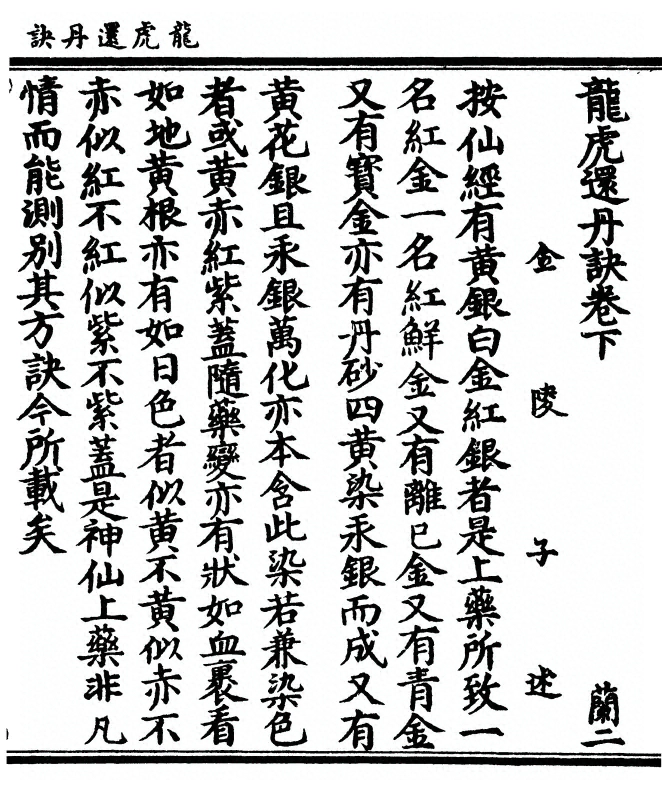 龍虎還丹訣
龍虎還丹訣卷下 蘭二
金陵子述
按仙經有黃銀白金紅銀者是上藥所致一
名紅金一名紅鮮金又有離巳金又有青金
又有寶金亦有丹砂四黃染汞銀而成又有
黃花銀且汞銀萬化亦本含此染若兼染色
者或黃赤紅紫蓋隨藥變亦有狀如血裹看
如地黃根亦有如日色者似黃不黃似赤不
赤似紅不紅似紫不紫蓋是神仙上藥非凡
情而能測別其方訣今所載矣